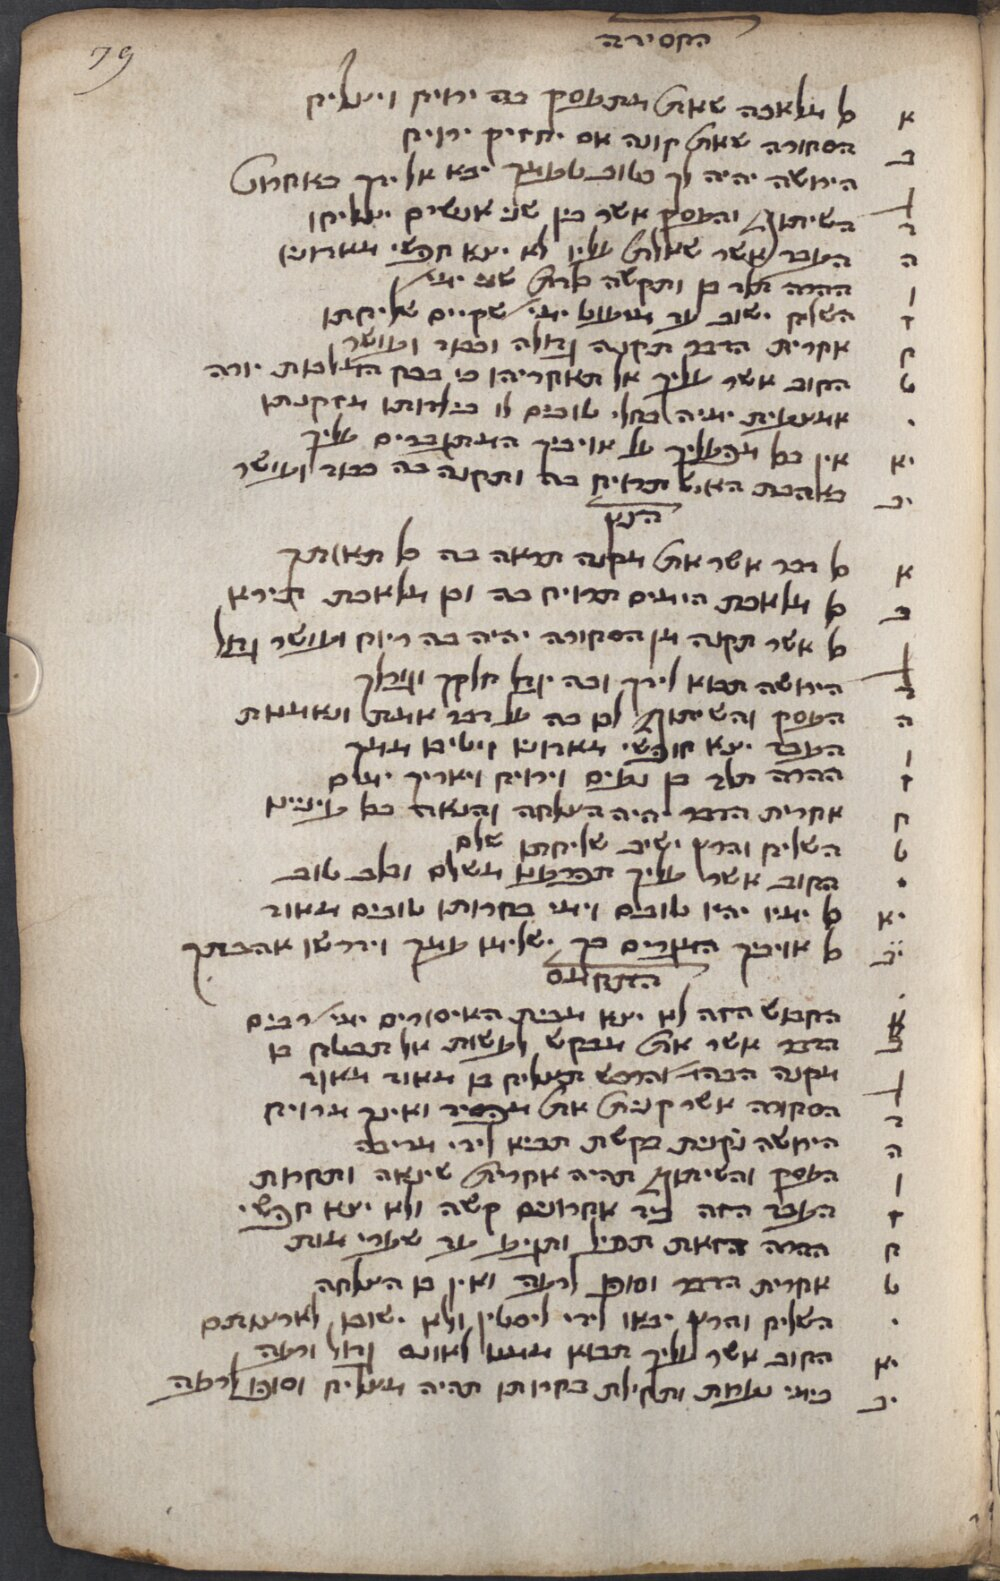 79
החסידה
א כל מלאכה שאתה מתעסק בה ירויח ויצליח
ב הסחורה שאתה קונה אם יחזיק ירויח
ג הירושה יהיה לך בטוב טעמך יבא אל ידך באחרונה
ד השיתוף והעסק אשר בין שני אנשים יצליחו
ה העבד אשר שאלת עליו לא יצא חפשי מאדוניו
ו ההרה תלד בן ותקשה בלדתה שני ימי
ז השליח ישוב עד מעט ימי שקיים שליחתו
ח אחרית הדבר תקנה גדולה וכבוד ועושר
ט החוב אשר עליך אל תאחריהו כי בכח המלכות יורה
י אמצעית ימיה בחלי טובים לו בילדותו מזקנתו
יא אין כל מצליך על אויביך המתגברים עליך
יב באהבת האיש תרויח בה ותקנה בה כבוד ועושר
הנץ
א כל דבר אשר אתה מקנה תראה בה כל תאותך
ב כל מלאכת הימים תרויח בה וכן מלאכת
ג כל אשר תקנה מן הסחורה יהיה בה ריוח ועושר גדול
ד הירושה תבוא לידך ובה יגדל חלקך וגורלך
ה העסק והשיתוף לך בה על דבר אמת ונאמנת
ו העבד יצא חופשי מאדוניו
ז ההרה תלד בן נעים וירויח ויאריך ימים
ח אחרית הדבר יהיה הצלחה והנאה בכל עינייניו
ט השליח והרץ ישיב שליחתו שלם
י החוב אשר עליך תפרענו משלם ובלב טוב
יא כל ימיו יהיו טובים וימי בחרותו טובים מאוד
יב כל אויביך הקמים בך ישלימו עמך וידרשו אהבתך
התנחמס
א החבוש הזה לא יצא מבית האיסורים ימי רבים
ב הדבר אשר אתה מבקש לעשות אל תבטח בו
ג מקנה הבהמה והרכש תצליח בו מאוד מאוד
ד הסחורה אשר קנית אתה מפסיד ואינך מרויח
ה הירושה נקנית בקשת תביא לידי מריבה
ו העסק והשיתוף תהיה אחריתה שינאה ותחרות
ז העבד הזה ביד אחרונים קשה ולא יצא חפשי
ח ההרה הזאת תפיל ותגיע עד שערי מות
ט אחרית הדבר וסופו לרעה ואין בו הצלחה
י השליח והרץ יבאו לידי ליסטין ולא ישובו לארצותם
יא החוב אשר עליך תבוא ממנו לאונס גדול ורעה
יב בימי נערות ותחילת בחרותו תהיה מצליח וסופו לרעה